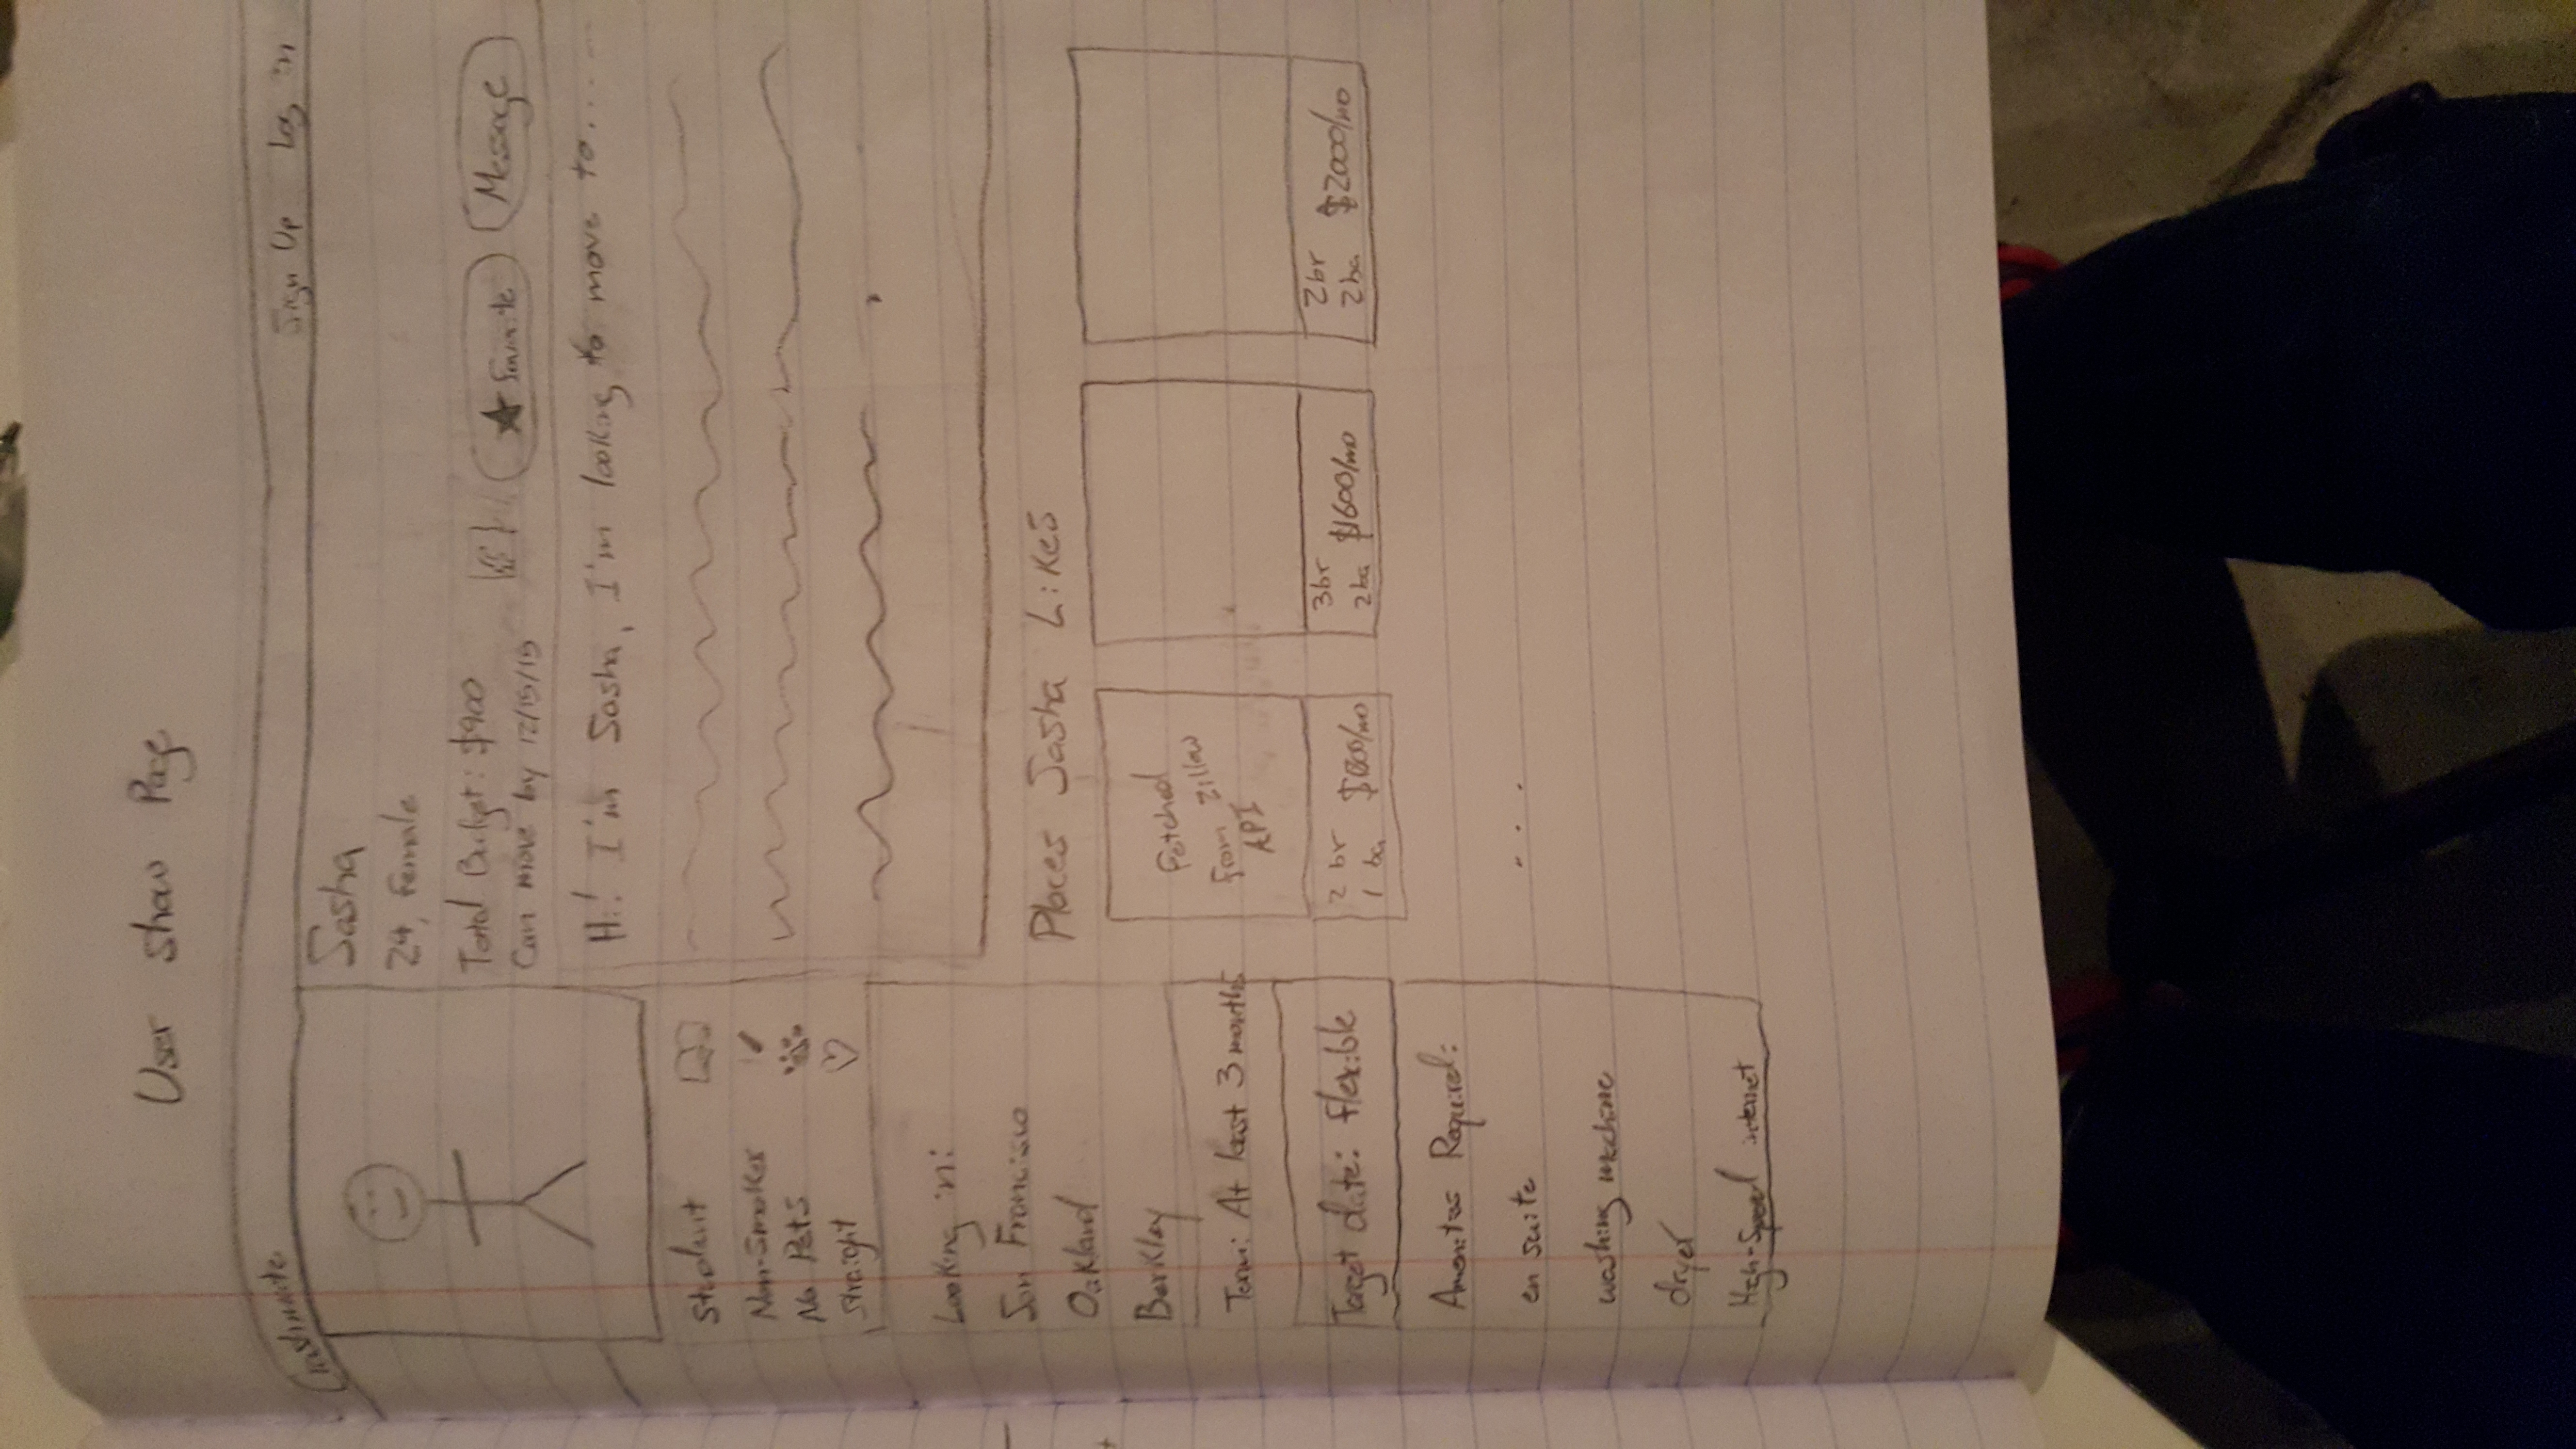 User Show Page
Sign Up Log in
Sasha
24, Female
Total Budget: $900
Can move by 12/15/15
★ Favorite
Message
Hi! I'm Sasha, I'm looking to move to.....
Student
Non-Smoker
No Pets
Straight
Looking in:
San Francisco
Oakland
Berkley
Term: At least 3 months
Target date: flexible
Amenities Required:
en suite
washing machine
dryer
High-Speed internet
Places Sasha Likes
Fetched
from Zillow
API
2 br
1 ba
3br
2ba $1600/mo
2br
2ba $2000/mo
...